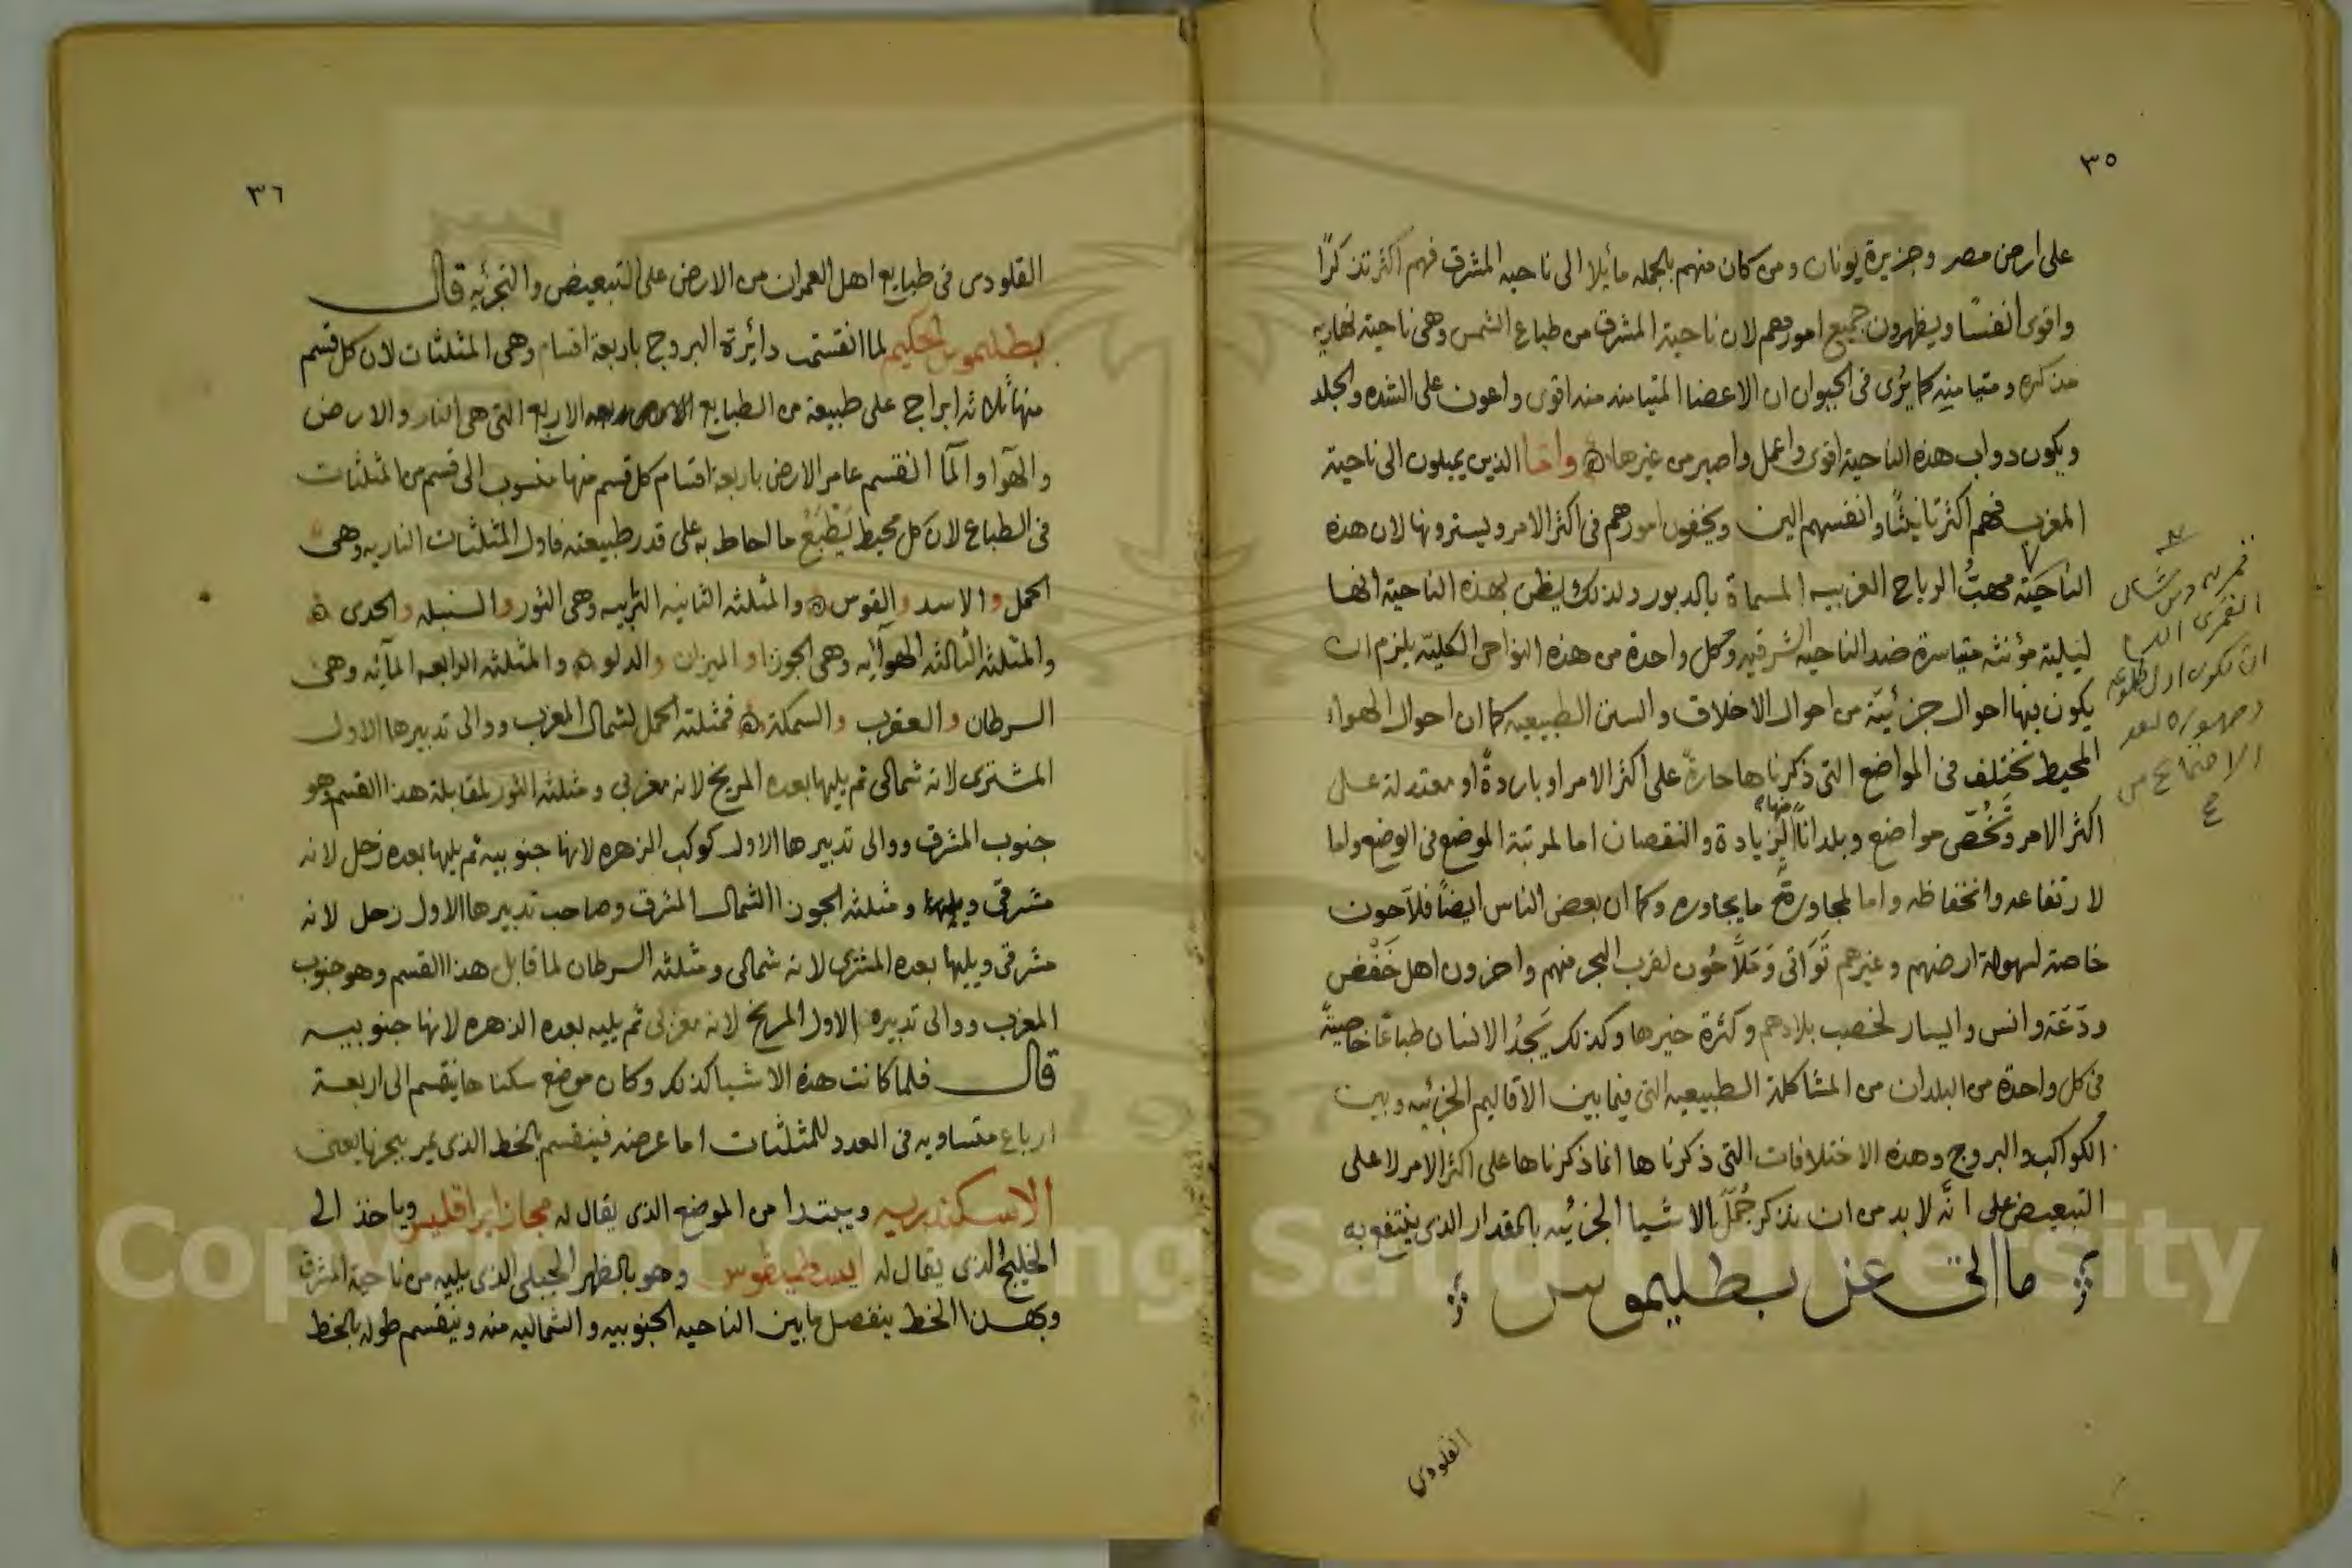 ٣٥
على ارض مصر وجزيرة يونان ومن كان منهم بالجمله مائلا الى ناحيه المشرق فهم اكثر تذكرًا
واقوى انفسًا ويظهرون جميع امورهم لان ناحية المشرق من طباع الشمس وهى ناحية نهاريه
مذكره ومتيامنه كما يُرى فى الحيوان ان الاعضا المتيامنه منه اقوى واعون على الشده والجلد
ويكون دواب هذه الناحية اقوى واعمل واصبر من غيرها واما الذين يميلون الى ناحية
المغرب فهم اكثر تانيثًا وانفسهم الين ويخفون امورهم فى اكثر الامر ويسترونها لان هذه
الناحيَة مهبُّ الرياح الغربيه المسماة بالدبور ولذلك يظن بهذه الناحية انها
ليلية مؤنثه متياسرة ضد الناحيه الشرقيه وكل واحدة من هذه النواحى الكلية يلزم ان
يكون فيها احوال جزئيّة من احوال الاخلاق والسنن الطبيعيه كما ان احوال الهواء
المحيط تختلف فى المواضع التى ذكرناها حارة على اكثر الامر او باردةً او معتدلة على
اكثر الامر وتخُصّ مواضع وبلداناً منها بالزيادة والنقصان اما لمرتبة الموضع فى الوضع واما
لارتفاعه وانخفاظه واما لمجاورة ما يجاوره وكما ان بعض الناس ايضاً فلاحون
خاصة لسهولة ارضهم وغيرهم نَوَاتى وَمَلّاحُون لقرب البحر منهم واخرون اهل خَفْض
ودَعَة وانس واليسار لخصب بلادهم وكثرة خيرها وكذلك يَجدُ الانسان طباعًا خاصيةً
فى كل واحدة من البلدان من المشاكلة الطبيعيه التى فيما بين الاقاليم الجزئيه وبين
الكواكب والبروج وهذه الاختلافات التى ذكرناها انما ذكرناها على اكثر الامر لا على
التبعيض على انّه لا بد من ان نذكر جُمَل الاشيا الجزئيه بالمقدار الذى ينتفع به
ما اتى عن بطليموس
القلودى
ان تكون اول طلوعه
وظهوره بعد
الاجتماع من
٣٦
القلودى فى طبايع اهل العمران من الارض على التبعيض والتجزئيه قال
بطليموس الحكيم لما انقسمت دائرة البروج باربعة اقسام وهى المثلثات لان كل قسم
منها ثلاثه ابراج على طبيعة من الطبايع الاربع التى هى النار والارض
والهوا والما انقسم عامر الارض باربعة اقسام كل قسم منها منسوب الى قسم من المثلثات
فى الطباع لان كل محيط يَطْبَعُ ما احاط به على قدر طبيعته فاول المثلثات الناريه وهى
الحمل والاسد والقوس والمثلثه الثانيه الترابيه وهى الثور والسنبله والجدى
والمثلثه الثالثه الهوآئيه وهى الجوزا و الميزان والدلو والمثلثه الرابعه المآئيه وهى
السرطان والعقرب والسمكة فمثلثة الحمل لشمال المغرب ووالى تدبيرها الاول
المشترى لانه شمالى ثم يليها بعده المريخ لانه مغربي ومثلثه الثور لمقابلة هذا القسم وهو
جنوب المشرق ووالى تدبيرها الاول كوكب الزهره لانها جنوبيه ثم يليها بعده زحل لانه
مشرقى ومثلثه الجوزا الشمال المشرق وصاحب تدبيرها الاول زحل لانه
مشرقى ويليها بعده المشترى لانه شمالى ومثلثه السرطان لما قابل هذا القسم وهو جنوب
المغرب ووالى تدبيره الاول المريخ لانه مغربى ثم يليه بعده الزهره لانها جنوبيه
قال فلما كانت هذه الاشيا كذلك وكان موضع سكناها ينقسم الى اربعة
ارباع متساويه فى العدد للمثلثات اما عرضه فينقسم بالخط الذى يمر ببحرنا يعنى
الاسكندريه ويبتدا من الموضع الذى يقال له مجاز ايراقليس وياخذ الى
الخليج الذى يقال له وهو بالظهر الجبلى الذى يليه من ناحية المشرق
وبهذا الخط ينفصل ما بين الناحيه الجنوبيه والشماليه منه وينقسم طوله بالخط
Copyright © King Saud University
1957